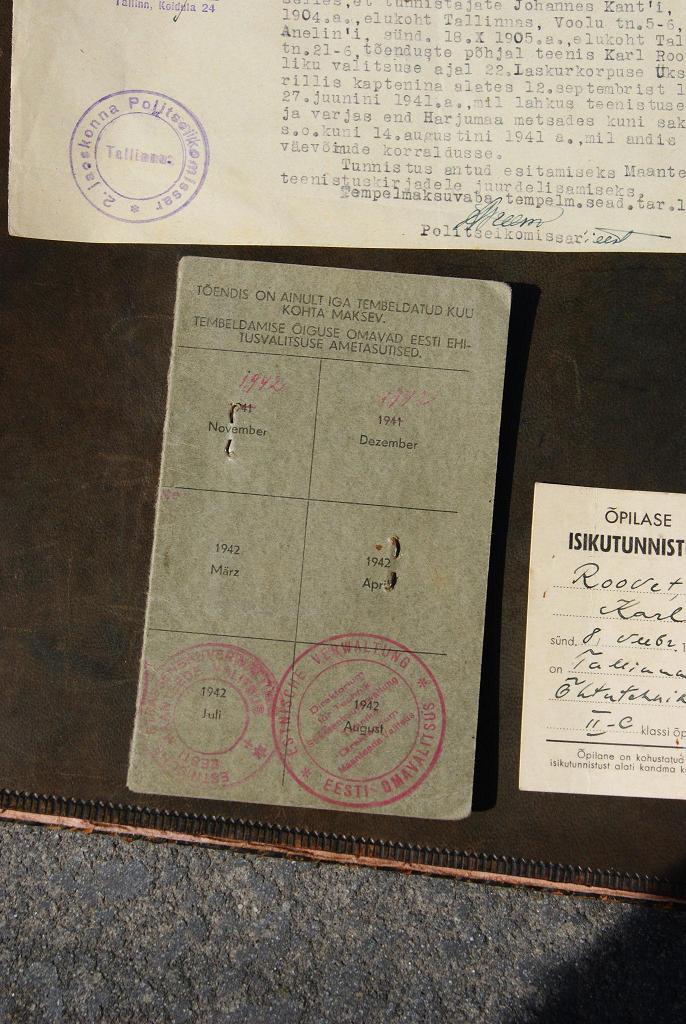 Tallinn, Koidula 24
selles, et tunnistajate Johannes Kant'i,
1904.a., elukoht Tallinnas, Voolu tn.5-6,
Anelin'i, sünd. 18.X 1905.a., elukoht Tal
tn.21-6, tõenduste põhjal teenis Karl Roo
liku valitsuse ajal 22.Laskurkorpuse Üks
rillis kaptenina alates 12.septembrist 1
27.juunini 1941.a., mil lahkus teenistuse
ja varjas end Harjumaa metsades kuni sak
s.o.kuni 14.augustini 1941 a., mil andis
väevõimude korraldusse.
Tunnistus antud esitamiseks Maante
teenistuskirjadele juurdelisamiseks.
Tempelmaksuvaba tempelm.sead.tar.1
Politseikomissar
2. jaoskonna Politseikomissar
Tallinnas
TÕENDIS ON AINULT IGA TEMBELDATUD KUU
KOHTA MAKSEV.
TEMBELDAMISE ÕIGUSE OMAVAD EESTI EHI-
TUSVALITSUSE AMETASUTISED.
1942
1941
November
1942
1941
Dezember
1942
März
1942
April
1942
Juli
1942
August
ESTNISCHE VERWALTUNG
EESTI OMAVALITSUS
Direktorium
für Technik
Maanteede Talitus
ESTNI
EESTI
ÕPILASE
ISIKUTUNNIST
Roovet,
Karl
sünd. 8. veebr.
on Tallinna
Õhtutehnik
II-C klassi õp
Õpilane on kohustatud
isikutunnistust alati kandma k